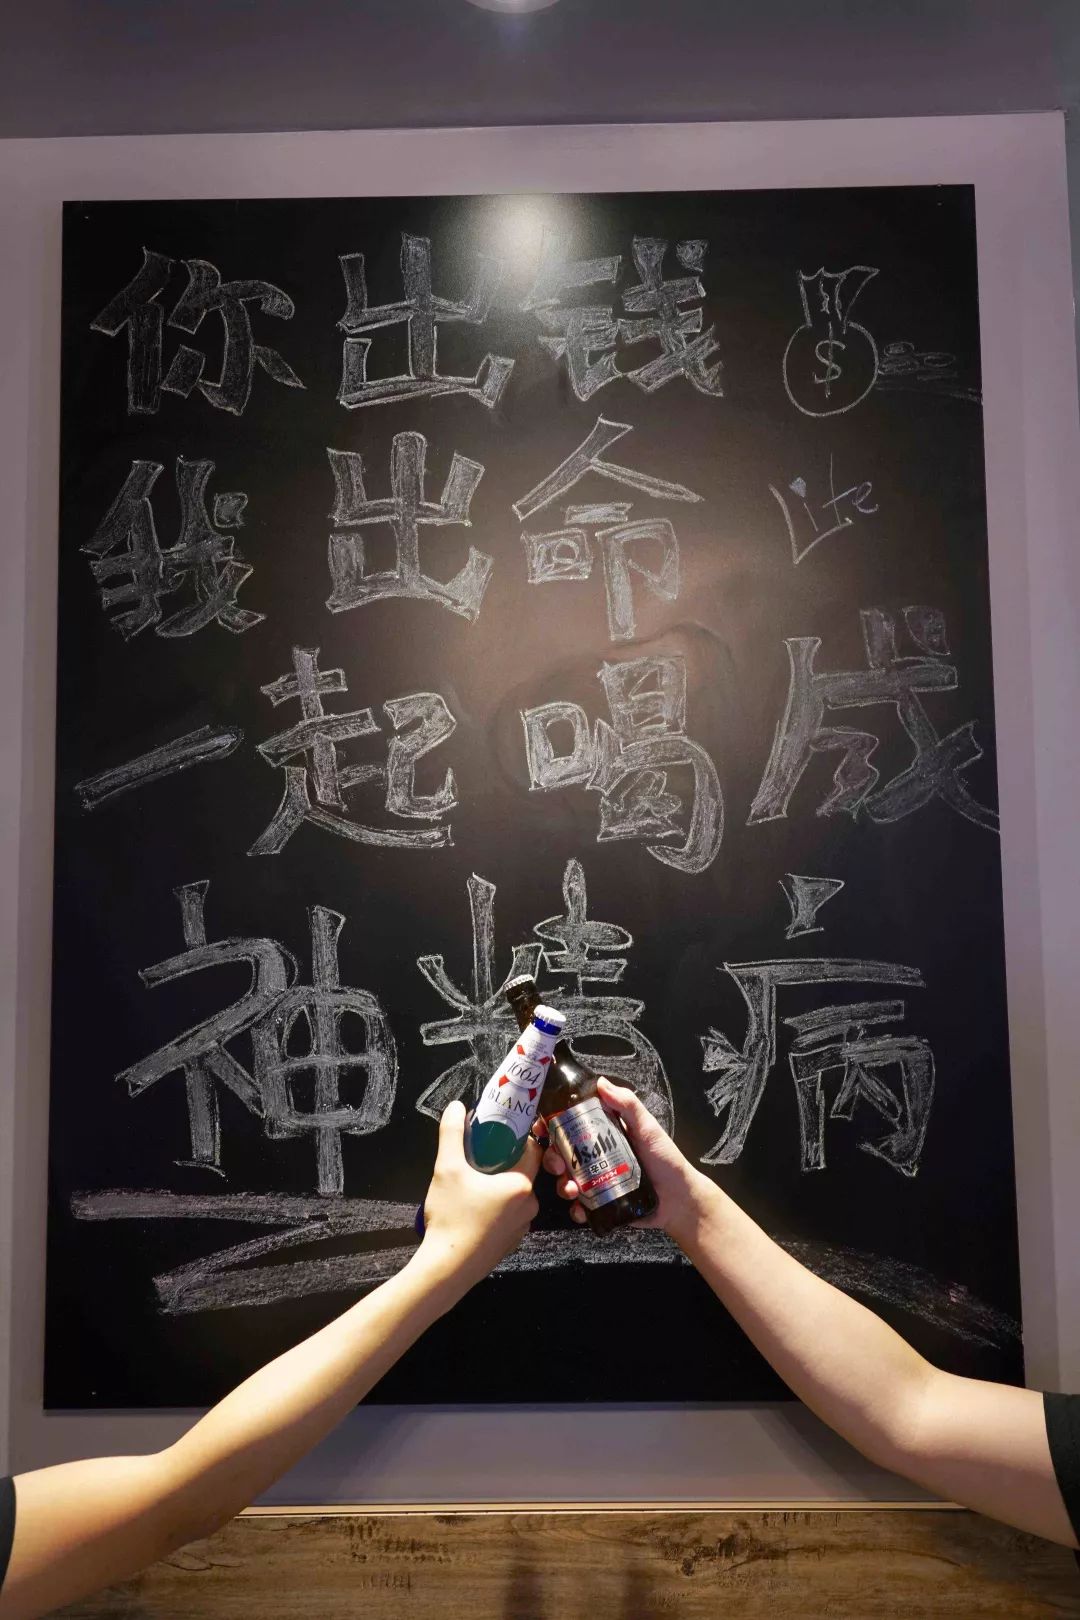 你出钱 $
我出命 Life
一起喝成
神精病
1664
BLANC
Asahi
辛口
スーパードライ